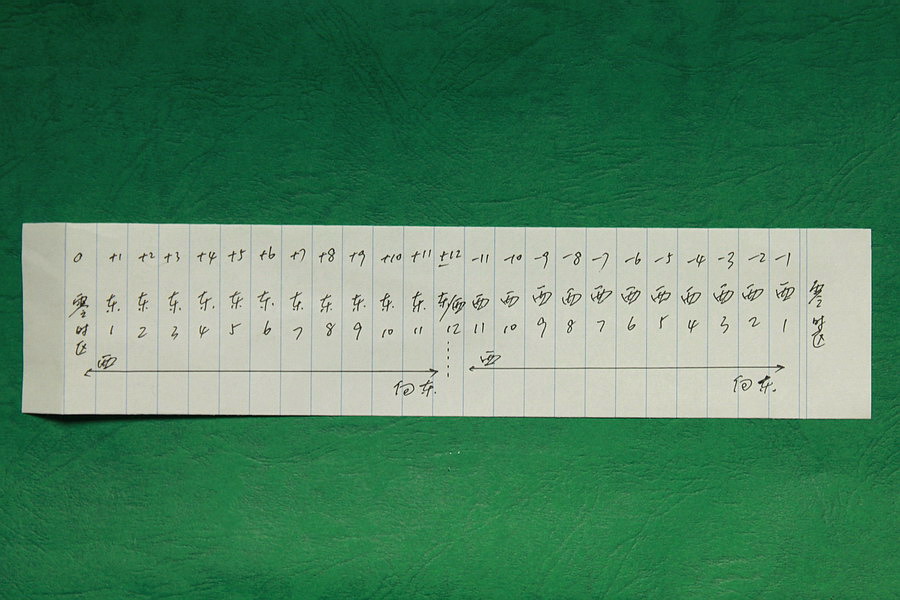 0 +1 +2 +3 +4 +5 +6 +7 +8 +9 +10 +11 ±12 -11 -10 -9 -8 -7 -6 -5 -4 -3 -2 -1
零时区 东1 东2 东3 东4 东5 东6 东7 东8 东9 东10 东11 东/西12 西11 西10 西9 西8 西7 西6 西5 西4 西3 西2 西1 零时区
西 西
向东 向东